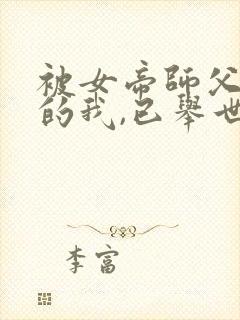 被女帝師父
的我,已舉世
李富